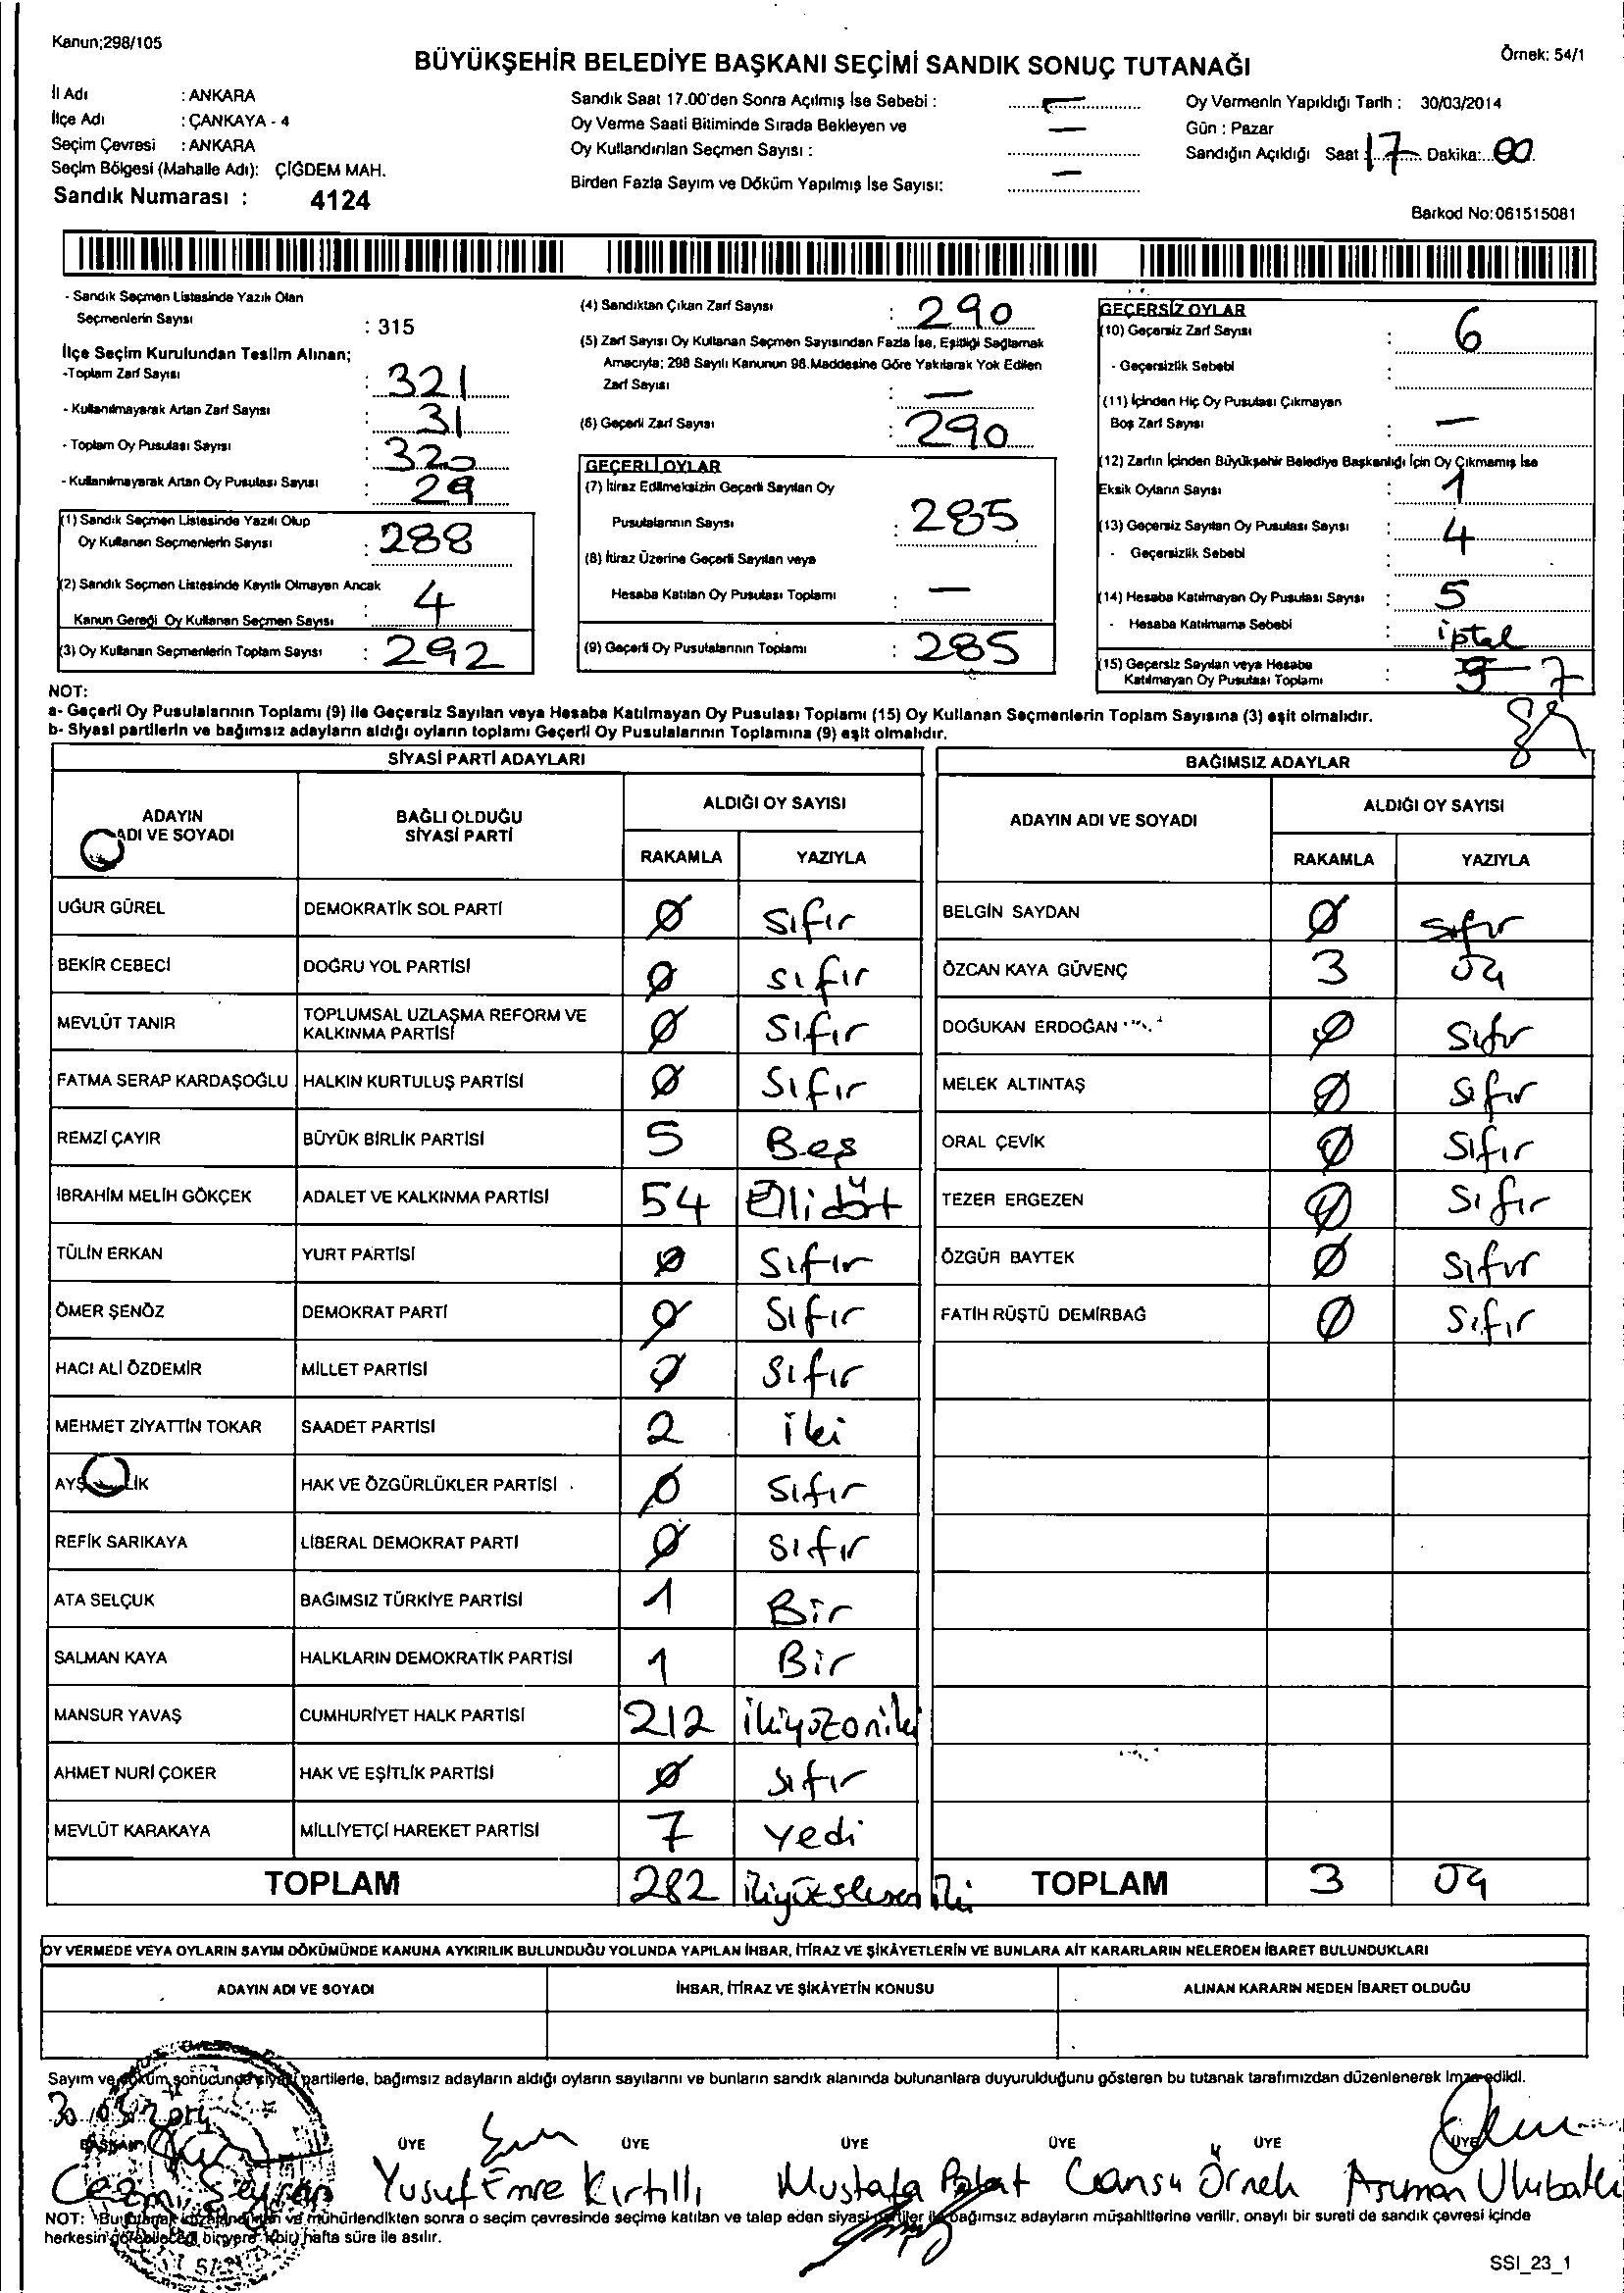 Kanun;298/105
Örnek: 54/1
BÜYÜKŞEHİR BELEDİYE BAŞKANI SEÇİMİ SANDIK SONUÇ TUTANAĞI
İl Adı : ANKARA
İlçe Adı : ÇANKAYA - 4
Seçim Çevresi : ANKARA
Seçim Bölgesi (Mahalle Adı): ÇİĞDEM MAH.
Sandık Numarası : 4124
Sandık Saat 17.00'den Sonra Açılmış İse Sebebi : —
Oy Verme Saati Bitiminde Sırada Bekleyen ve
Oy Kullandırılan Seçmen Sayısı : —
Birden Fazla Sayım ve Döküm Yapılmış İse Sayısı: —
Oy Vermenin Yapıldığı Tarih : 30/03/2014
Gün : Pazar
Sandığın Açıldığı Saat : 17 Dakika: 00
Barkod No:061515081
- Sandık Seçmen Listesinde Yazılı Olan
Seçmenlerin Sayısı : 315
İlçe Seçim Kurulundan Teslim Alınan;
-Toplam Zarf Sayısı : 321
- Kullanılmayarak Artan Zarf Sayısı : 31
- Toplam Oy Pusulası Sayısı : 320
- Kullanılmayarak Artan Oy Pusulası Sayısı : 29
(1) Sandık Seçmen Listesinde Yazılı Olup
Oy Kullanan Seçmenlerin Sayısı : 288
(2) Sandık Seçmen Listesinde Kayıtlı Olmayan Ancak
Kanun Gereği Oy Kullanan Seçmen Sayısı : 4
(3) Oy Kullanan Seçmenlerin Toplam Sayısı : 292
(4) Sandıktan Çıkan Zarf Sayısı : 290
(5) Zarf Sayısı Oy Kullanan Seçmen Sayısından Fazla İse, Eşitliği Sağlamak
Amacıyla; 298 Sayılı Kanunun 98.Maddesine Göre Yakılarak Yok Edilen
Zarf Sayısı : —
(6) Geçerli Zarf Sayısı : 290
GEÇERLİ OYLAR
(7) İtiraz Edilmeksizin Geçerli Sayılan Oy
Pusulalarının Sayısı : 285
(8) İtiraz Üzerine Geçerli Sayılan veya
Hesaba Katılan Oy Pusulası Toplamı : —
(9) Geçerli Oy Pusulalarının Toplamı : 285
GEÇERSİZ OYLAR
(10) Geçersiz Zarf Sayısı : 6
- Geçersizlik Sebebi :
(11) İçinden Hiç Oy Pusulası Çıkmayan
Boş Zarf Sayısı : —
(12) Zarfın İçinden Büyükşehir Belediye Başkanlığı İçin Oy Çıkmamış İse
Eksik Oyların Sayısı : 1
(13) Geçersiz Sayılan Oy Pusulası Sayısı : 4
- Geçersizlik Sebebi :
(14) Hesaba Katılmayan Oy Pusulası Sayısı : 5
- Hesaba Katılmama Sebebi : iptal
(15) Geçersiz Sayılan veya Hesaba
Katılmayan Oy Pusulası Toplamı : 7
NOT:
a- Geçerli Oy Pusulalarının Toplamı (9) ile Geçersiz Sayılan veya Hesaba Katılmayan Oy Pusulası Toplamı (15) Oy Kullanan Seçmenlerin Toplam Sayısına (3) eşit olmalıdır.
b- Siyasi partilerin ve bağımsız adayların aldığı oyların toplamı Geçerli Oy Pusulalarının Toplamına (9) eşit olmalıdır.
SİYASİ PARTİ ADAYLARI
ADAYIN ADI VE SOYADI BAĞLI OLDUĞU SİYASİ PARTİ ALDIĞI OY SAYISI RAKAMLA YAZIYLA
UĞUR GÜREL DEMOKRATİK SOL PARTİ Ø Sıfır
BEKİR CEBECİ DOĞRU YOL PARTİSİ Ø sıfır
MEVLÜT TANIR TOPLUMSAL UZLAŞMA REFORM VE KALKINMA PARTİSİ Ø Sıfır
FATMA SERAP KARDAŞOĞLU HALKIN KURTULUŞ PARTİSİ Ø Sıfır
REMZİ ÇAYIR BÜYÜK BİRLİK PARTİSİ 5 Beş
İBRAHİM MELİH GÖKÇEK ADALET VE KALKINMA PARTİSİ 54 Ellidört
TÜLİN ERKAN YURT PARTİSİ Ø Sıfır
ÖMER ŞENÖZ DEMOKRAT PARTİ Ø Sıfır
HACI ALİ ÖZDEMİR MİLLET PARTİSİ Ø Sıfır
MEHMET ZİYATTİN TOKAR SAADET PARTİSİ 2 iki
HAK VE ÖZGÜRLÜKLER PARTİSİ Ø Sıfır
REFİK SARIKAYA LİBERAL DEMOKRAT PARTİ Ø Sıfır
ATA SELÇUK BAĞIMSIZ TÜRKİYE PARTİSİ 1 Bir
SALMAN KAYA HALKLARIN DEMOKRATİK PARTİSİ 1 Bir
MANSUR YAVAŞ CUMHURİYET HALK PARTİSİ 212 ikiyüzoniki
AHMET NURİ ÇOKER HAK VE EŞİTLİK PARTİSİ Ø sıfır
MEVLÜT KARAKAYA MİLLİYETÇİ HAREKET PARTİSİ 7 yedi
TOPLAM 282 ikiyüzseksen iki
BAĞIMSIZ ADAYLAR
ADAYIN ADI VE SOYADI ALDIĞI OY SAYISI RAKAMLA YAZIYLA
BELGİN SAYDAN Ø sıfır
ÖZCAN KAYA GÜVENÇ 3 üç
DOĞUKAN ERDOĞAN Ø Sıfır
MELEK ALTINTAŞ Ø Sıfır
ORAL ÇEVİK Ø Sıfır
TEZER ERGEZEN Ø Sıfır
ÖZGÜR BAYTEK Ø Sıfır
FATİH RÜŞTÜ DEMİRBAĞ Ø Sıfır
TOPLAM 3 üç
OY VERMEDE VEYA OYLARIN SAYIM DÖKÜMÜNDE KANUNA AYKIRILIK BULUNDUĞU YOLUNDA YAPILAN İHBAR, İTİRAZ VE ŞİKÂYETLERİN VE BUNLARA AİT KARARLARIN NELERDEN İBARET BULUNDUKLARI
ADAYIN ADI VE SOYADI İHBAR, İTİRAZ VE ŞİKÂYETİN KONUSU ALINAN KARARIN NEDEN İBARET OLDUĞU
Sayım ve döküm sonucunda siyasi partilerle, bağımsız adayların aldığı oyların sayılarını ve bunların sandık alanında bulunanlara duyurulduğunu gösteren bu tutanak tarafımızdan düzenlenerek imza edildi.
30/03/2014
BAŞKAN ÜYE ÜYE ÜYE ÜYE ÜYE ÜYE
Yusuf Emre Kırtıllı Mustafa Polat Cansu Örnek
NOT: Bu tutanak imzalandıktan ve mühürlendikten sonra o seçim çevresinde seçime katılan ve talep eden siyasi partiler ile bağımsız adayların müşahitlerine verilir, onaylı bir sureti de sandık çevresi içinde
herkesin görebileceği bir yere (bir) hafta süre ile asılır.
SSI_23_1